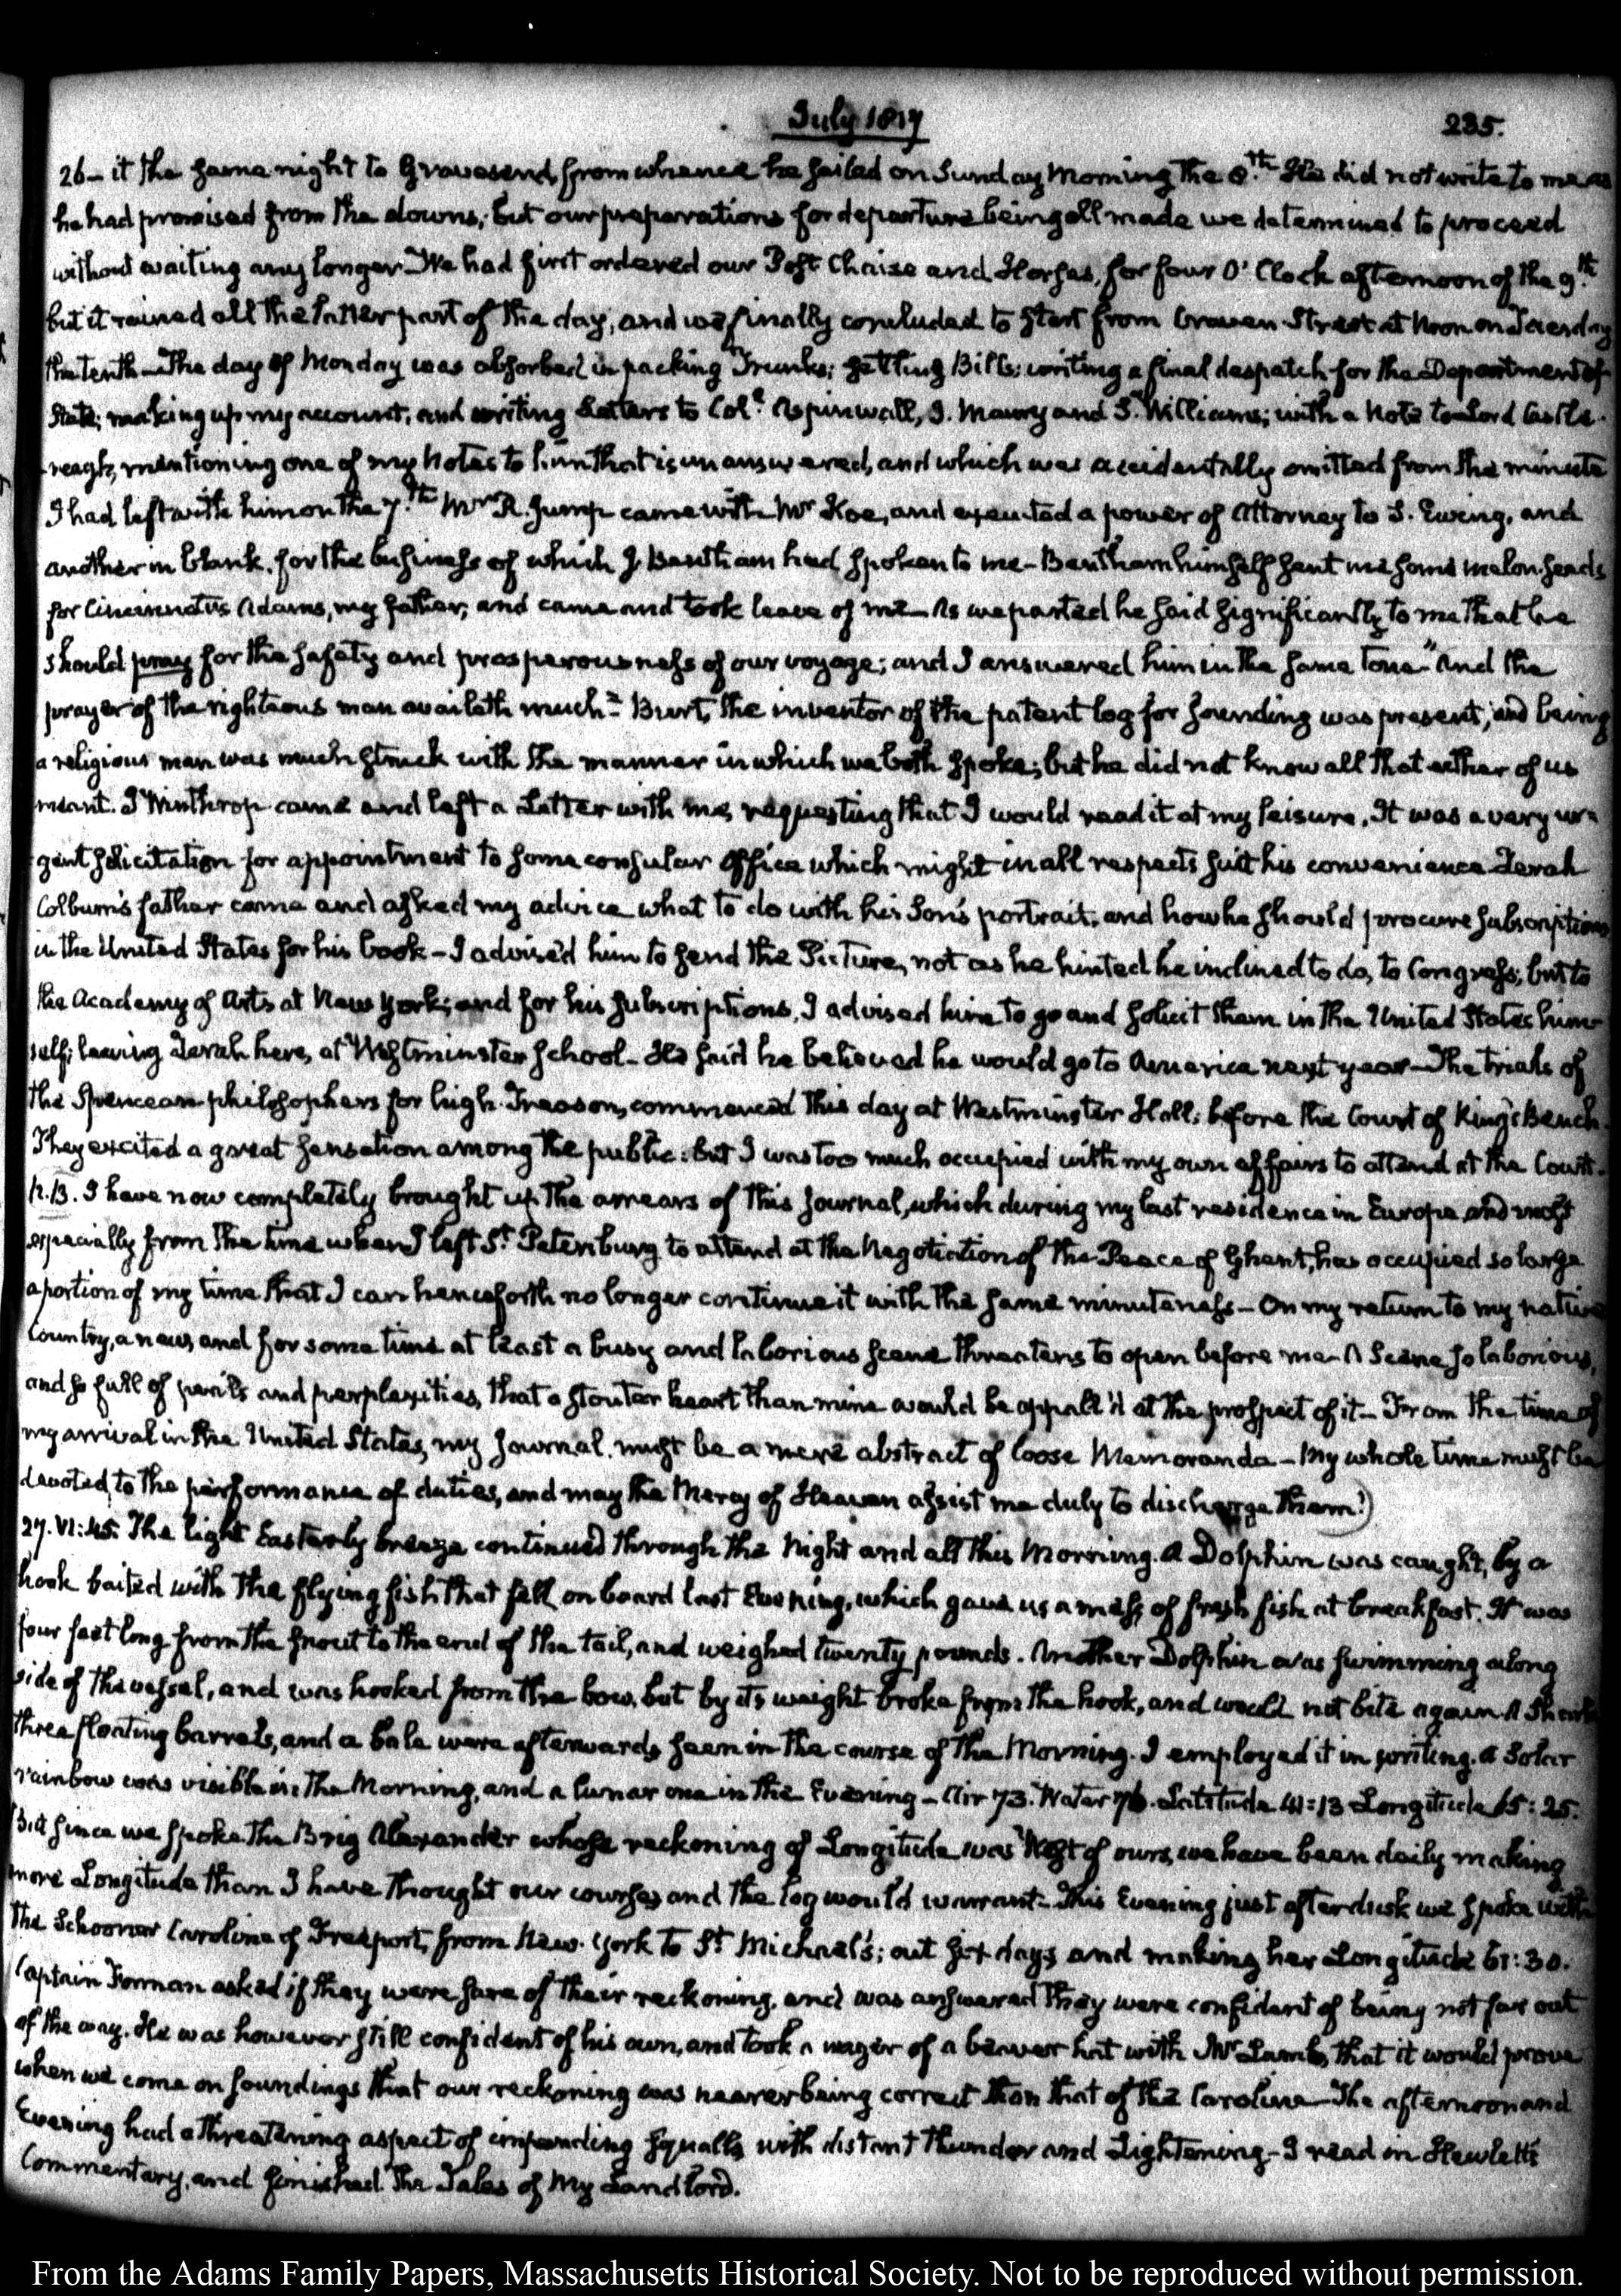 July 1817
235.
26 – it the same night to Gravesend, from whence he sailed on Sunday Morning the 8.th He did not write to me as
he had promised from the downs; but our preparations for departure being all made we determined to proceed
without waiting any longer. We had first ordered our Post Chaise and Horses, for four O'Clock afternoon of the 9.th
but it rained all the latter part of the day, and we finally concluded to start from Craven Street at Noon on Tuesday
the tenth – The day of Monday was absorbed in packing Trunks; settling Bills; writing a final despatch for the Department of
State; making up my account, and writing Letters to Col.l Aspinwall, J. Maury and S. Williams; with a Note to Lord Castle-
reagh, mentioning one of my Notes to him that is unanswered, and which was accidentally omitted from the minute
I had left with him on the 7.th Mr R. Jump came with Mr Koe, and executed a power of Attorney to S. Ewing, and
another in blank, for the business of which J. Bentham had spoken to me – Bentham himself sent me some melon-seeds
for Cincinnatus Adams, my father; and came and took leave of me – As we parted he said significantly to me that he
should pray for the safety and prosperousness of our voyage; and I answered him in the same tone – "And the
prayer of the righteous man availeth much" – Burt, the inventor of the patent log for sounding was present, and being
a religious man was much struck with the manner in which we both spoke; but he did not know all that either of us
meant. J Winthrop came and left a Letter with me, requesting that I would read it at my leisure. It was a very ur-
gent solicitation for appointment to some consular Office which might in all respects suit his convenience. Zerah
Colburn's father came and asked my advice what to do with his Son's portrait, and how he should procure subscriptions
in the United States for his book – I advised him to send the Picture, not as he hinted he inclined to do, to Congress; but to
the Academy of Arts at New York; and for his subscriptions, I advised him to go and solicit them in the United States him-
self; leaving Zerah here, at Westminster School – He said he believed he would go to America next year – The trials of
the Spencean philosophers for high-Treason, commenced this day at Westminster Hall; before the Court of King's Bench.
They excited a great sensation among the public: but I was too much occupied with my own affairs to attend at the Court.
N.B. I have now completely brought up the arrears of this Journal, which during my last residence in Europe, and most
especially from the time when I left St. Petersburg to attend at the Negotiation of the Peace of Ghent, has occupied so large
a portion of my time that I can henceforth no longer continue it with the same minuteness – On my return to my native
Country, a new, and for some time at least a busy and laborious scene threatens to open before me – A Scene so laborious,
and so full of perils and perplexities, that a stouter heart than mine would be appall'd at the prospect of it – From the time of
my arrival in the United States, my Journal must be a mere abstract of loose Memoranda – My whole time must be
devoted to the performance of duties, and may the Mercy of Heaven assist me duly to discharge them!)
27. VI:45. The light Easterly breeze continued through the Night and all this Morning. A Dolphin was caught, by a
hook baited with the flying fish that fell on board last Evening, which gave us a mess of fresh fish at breakfast. It was
four feet long from the snout to the end of the tail, and weighed twenty pounds. Another Dolphin was swimming along
side of the vessel, and was hooked from the bow, but by its weight broke from the hook, and would not bite again. A Shark
three floating barrels, and a bale were afterwards seen in the course of the Morning. I employed it in writing. A Solar
rainbow was visible in the Morning, and a lunar one in the Evening – Air 73. Water 76. Latitude 41:13 Longitude 65:25.
But since we spoke the Brig Alexander whose reckoning of Longitude was West of ours, we have been daily making
more Longitude than I have thought our courses and the log would warrant – This Evening just after dusk we spoke with
the Schooner Caroline of Freeport, from New-York to St Michael's; out six days and making her Longitude 61:30.
Captain Forman asked if they were sure of their reckoning, and was answered they were confident of being not far out
of the way. He was however still confident of his own, and took a wager of a beaver hat with Mr Lamb, that it would prove
when we come on soundings that our reckoning was nearer being correct than that of the Caroline – The afternoon and
Evening had a threatening aspect of impending squalls, with distant thunder and Lightening – I read in Hewlett's
Commentary, and finished the Tales of My Landlord.
From the Adams Family Papers, Massachusetts Historical Society. Not to be reproduced without permission.